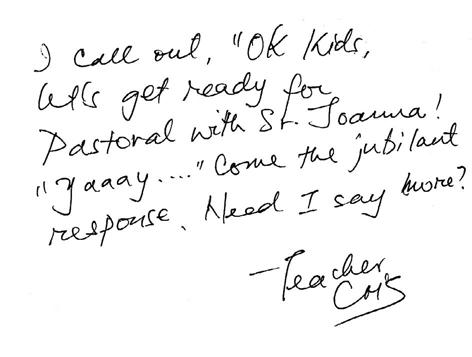 I call out, "OK Kids,
let's get ready for
Pastoral with Sr. Joanna!
"Yaaay...." Come the jubilant
response. Need I say more?
– Teacher
CMS